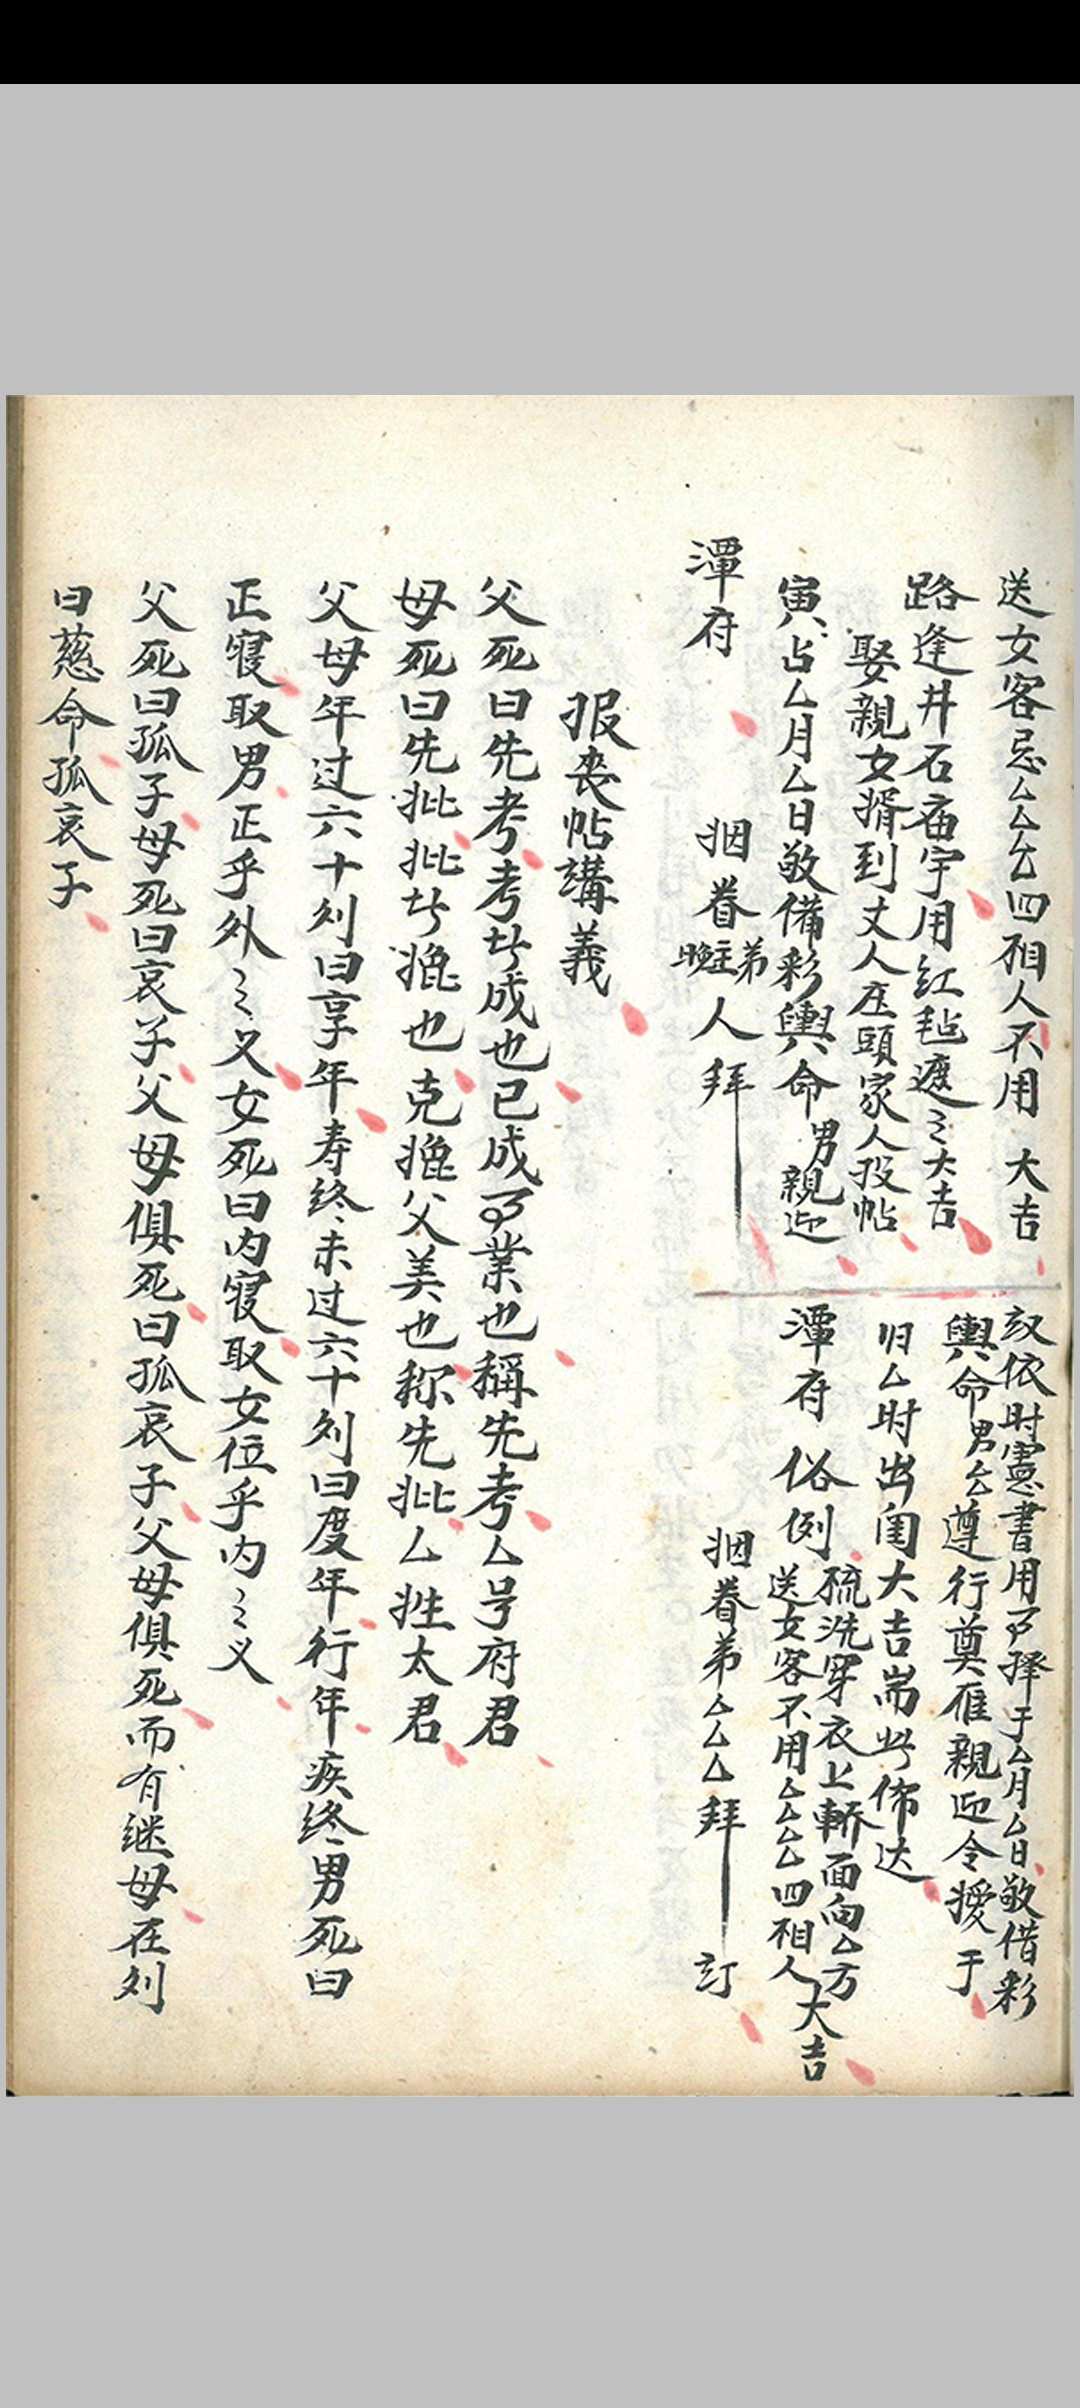 送女客忌厶厶厶厶四相人不用 大吉
路逢井石庙宇用红毡遮之大吉
娶親女揟到丈人庄頭家人投帖
寅占厶月厶日敬備彩輿命男親迎
潭府
姻眷弟晚生人拜
叙依时憲書用 择于厶月厶日敬借彩
輿命男厶遵行奠雁親迎令援于
归厶时出闺大吉耑此佈达
梳洗穿衣上轎面向厶方大吉
送女客不用厶厶厶厶四相人
潭府 俗例
姻眷弟厶厶厶拜 訂
报丧帖講義
父死曰先考考者成也已成 業也稱先考厶号府君
母死曰先妣妣者媲也克媲父美也称先妣厶姓太君
父母年过六十则曰享年寿终未过六十则曰度年行年疾终男死曰
正寝取男正乎外之义女死曰内寝取女位乎内之义
父死曰孤子母死曰哀子父母俱死曰孤哀子父母俱死而有继母在则
曰慈命孤哀子